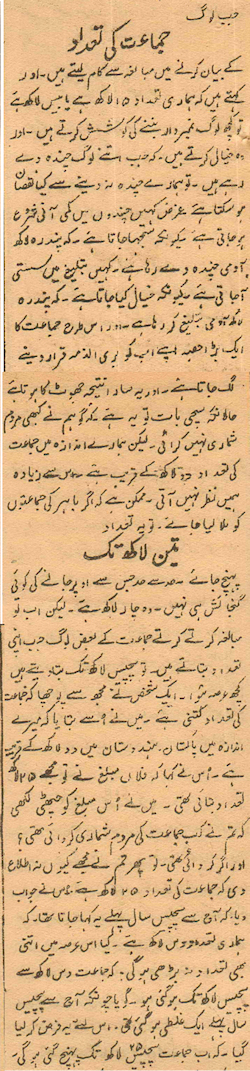 جب لوگ
جماعت کی تعداد
کے بیان کرنے میں مبالغہ سے کام لیتے ہیں۔ اور
کہتے ہیں کہ ہماری تعداد ۱۵ لاکھ ہے یا بیس لاکھ ہے
تو کچھ لوگ نمبردار بننے کی کوشش کرتے ہیں۔ اور
وہ خیال کرتے ہیں۔ کہ جب اتنے لوگ چندہ دے
رہے ہیں۔ تو ہمارے چندہ نہ دینے سے کیا نقصان
ہو سکتا ہے غرض کہیں چندوں میں کمی آنی شروع
ہو جاتی ہے۔ کیونکہ سمجھا جاتا ہے۔ کہ پندرہ لاکھ
آدمی چندہ دے رہا ہے۔ کہیں تبلیغ میں سستی
آ جاتی ہے۔ کیونکہ خیال کیا جاتا ہے۔ کہ پندرہ
لاکھ آدمی تبلیغ کر رہا ہے۔ اور اس طرح جماعت کا
ایک بڑا حصہ اپنے آپ کو بری الذمہ قرار دینے
لگ جاتا ہے۔ اور یہ سارا نتیجہ جھوٹ کا ہوتا ہے
حالانکہ سچی بات تو یہ ہے کہ گو ہم نے کبھی مردم
شماری نہیں کرائی۔ لیکن ہمارے اندازہ میں جماعت
کی تعداد دو لاکھ کے قریب ہے۔ اس سے زیادہ
ہمیں نظر نہیں آتی۔ ممکن ہے کہ اگر باہر کی جماعتوں
کو ملا لیا جائے۔ تو یہ تعداد
تین لاکھ تک
پہنچ جائے۔ حد سے حد جس سے اوپر جانے کی کوئی
گنجائش ہی نہیں۔ وہ چار لاکھ ہے۔ لیکن اب تو
مبالغہ کرتے کرتے جماعت کے بعض لوگ جب اپنی
تعداد بتاتے ہیں۔ تو پچیس لاکھ تک بتا دیتے ہیں
کچھ عرصہ ہوا۔ ایک شخص نے مجھ سے پوچھا کہ جماعت
کی تعداد کتنی ہے۔ میں نے اسے بتایا کہ میرے
اندازہ میں پاکستان۔ ہندوستان میں دو لاکھ کے قریب
ہے۔ اس نے کہا کہ فلاں مبلغ نے تو مجھے ۲۵ لاکھ
تعداد بتائی تھی۔ میں نے اس مبلغ کو چٹھی لکھی
کہ تم نے کب جماعت کی مردم شماری کروائی تھی؟
اور اگر کروائی تھی۔ تو پھر تم نے مجھے کیوں نہ اطلاع
دی کہ جماعت کی تعداد ۲۵ لاکھ ہے اس نے جواب
دیا کہ آج سے پچیس سال پہلے یہ کہا جاتا تھا۔ کہ
ہماری تعداد دس لاکھ ہے۔ کیا اس عرصہ میں اتنی
بھی تعداد نہ بڑھی ہو گی۔ کہ جماعت دس لاکھ سے
پچیس لاکھ تک ہو گئی ہو۔ گویا چونکہ آج سے پچیس
سال پہلے ایک غلطی ہو گئی تھی۔ اس لئے یہ فرض کر لیا
گیا۔ کہ اب جماعت پچیس لاکھ تک پہنچ گئی ہو گی۔